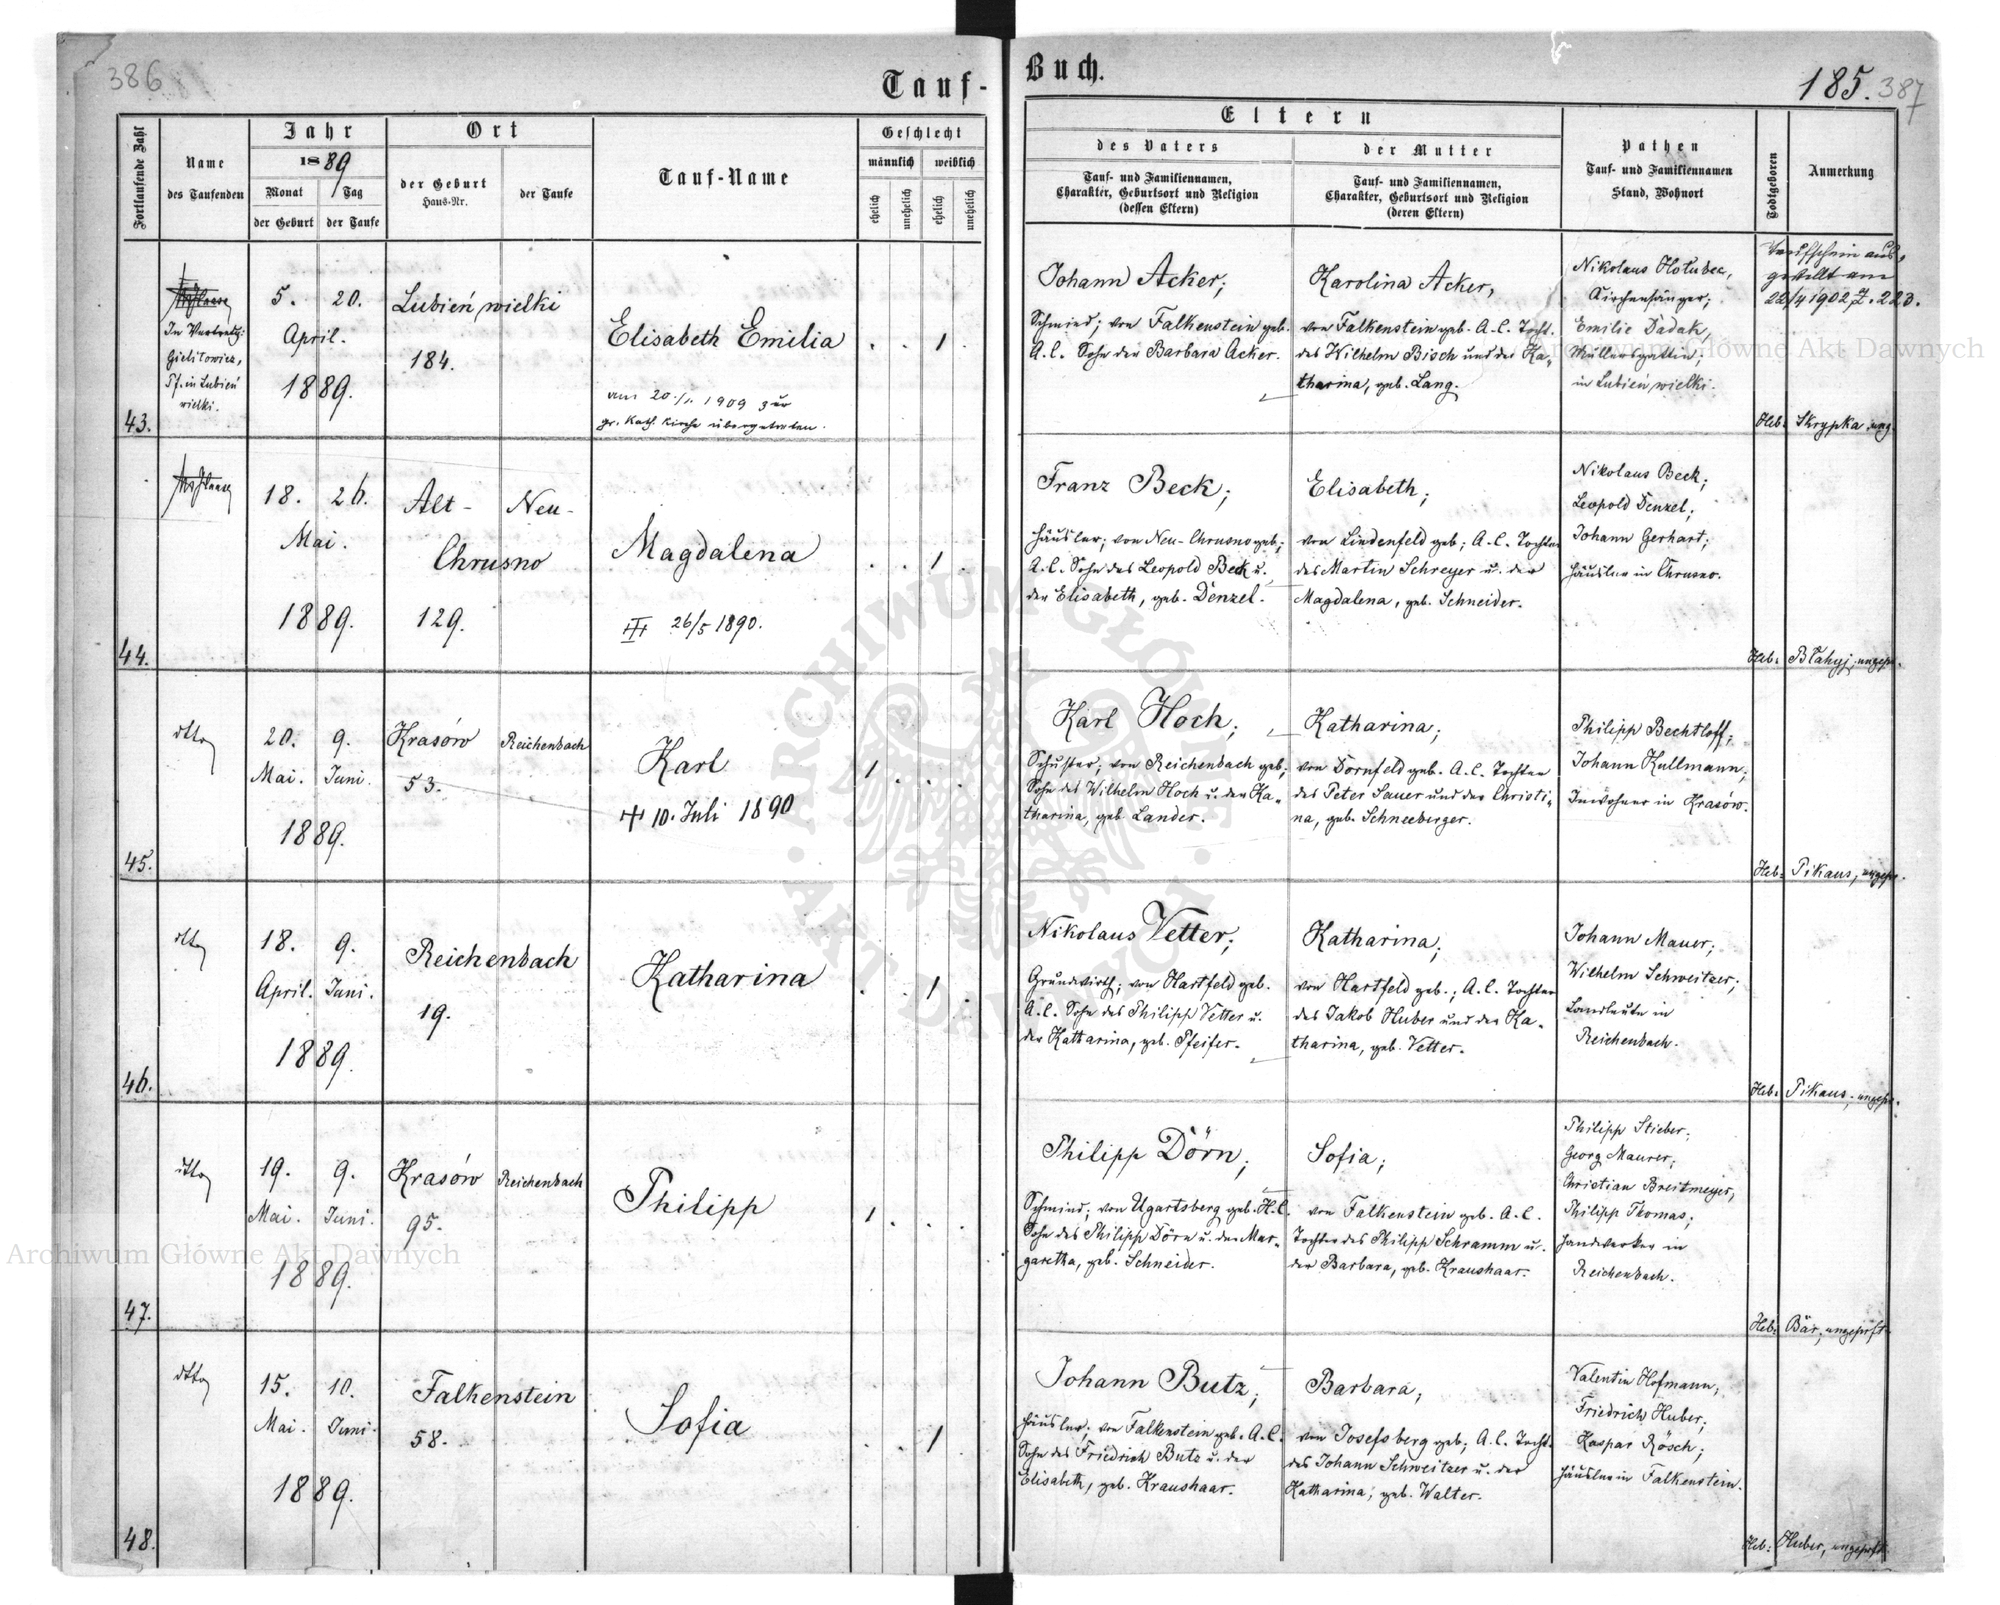 386
Tauf-
Buch.
185. 387
Fortlaufende Zahl
Name
des Taufenden
Jahr
1889
Monat
Tag
der Geburt
der Taufe
Ort
der Geburt
Haus-Nr.
der Taufe
Tauf-Name
Geschlecht
männlich
weiblich
ehelich
unehelich
ehelich
unehelich
Eltern
des Vaters
Tauf- und Familiennamen,
Charakter, Geburtsort und Religion
(dessen Eltern)
der Mutter
Tauf- und Familiennamen,
Charakter, Geburtsort und Religion
(deren Eltern)
Pathen
Tauf- und Familiennamen
Stand, Wohnort
Todtgeboren
Anmerkung
43.
In Vertretg:
Gielitowicz,
Pf. in Lubień
wielki.
5. 20.
April.
1889.
Lubień wielki
184.
Elisabeth Emilia
am 20./1. 1909 zur
gr. kath. Kirche übergetreten.
. . 1 .
Johann Acker;
Schmied; von Falkenstein geb.
A.C. Sohn der Barbara Acker.
Karolina Acker,
von Falkenstein geb. A.C. Tocht.
des Wilhelm Bisch und der Ka-
tharina, geb. Lang.
Nikolaus Hołubec,
Kirchensänger;
Emilie Dadak,
Müllersgattin;
in Lubień wielki.
Taufschein aus-
gestellt am
22/4 1902 Z. 223.
Heb: Skrypka, ung.
44.
18. 26.
Mai.
1889.
Alt- Neu-
Chrusno
129.
Magdalena
26/5 1890.
. . 1 .
Franz Beck;
Häusler; von Neu-Chrusno geb;
A.C. Sohn des Leopold Beck u.
der Elisabeth, geb. Denzel.
Elisabeth;
von Lindenfeld geb; A.C. Tochter
des Martin Schreyer u. der
Magdalena, geb. Schneider.
Nikolaus Beck;
Leopold Denzel;
Johann Gerhart;
Häusler in Chrusno.
Heb: Błahyj, ungepr.
45.
dtto
20. 9.
Mai. Juni.
1889.
Krasów Reichenbach
53.
Karl
10. Juli 1890
1 . . .
Karl Hoch;
Schuster; von Reichenbach geb;
Sohn des Wilhelm Hoch u. der Ka-
tharina, geb Lander.
Katharina;
von Dornfeld geb. A.C. Tochter
des Peter Sauer und der Christi-
na, geb. Schneeberger.
Philipp Bechtloff;
Johann Kullmann;
Inwohner in Krasów.
Heb: Pikaus, ungepr.
46.
dtto
18. 9.
April. Juni.
1889.
Reichenbach
19.
Katharina
. . 1 .
Nikolaus Vetter;
Grundwirth; von Hartfeld geb.
A.C. Sohn des Philipp Vetter u.
der Katharina, geb. Pfeifer.
Katharina;
von Hartfeld geb.; A.C. Tochter
des Jakob Huber und der Ka-
tharina, geb. Vetter.
Johann Mauer;
Wilhelm Schweitzer;
Landleute in
Reichenbach.
Heb: Pikaus, ungepr.
47.
dtto
19. 9.
Mai. Juni.
1889.
Krasów Reichenbach
95.
Philipp
1 . . .
Philipp Dörn;
Schmied; von Ugartsberg geb. H.C.
Sohn des Philipp Dörn u. der Mar-
garetha, geb. Schneider.
Sofia;
von Falkenstein geb. A.C.
Tochter des Philipp Schramm u.
der Barbara, geb. Kraushaar.
Philipp Stieber;
Georg Maurer;
Christian Breitmeyer;
Philipp Thomas;
Handwerker in
Reichenbach.
Heb: Bär, ungeprft
48.
dtto
15. 10.
Mai. Juni.
1889.
Falkenstein
58.
Sofia
. . 1 .
Johann Butz;
Häusler; von Falkenstein geb. A.C.
Sohn des Friedrich Butz u. der
Elisabeth, geb. Kraushaar.
Barbara;
von Josefsberg geb; A.C. Tocht.
des Johann Schweitzer u. der
Katharina; geb. Walter.
Valentin Hofmann;
Friedrich Huber;
Kaspar Rösch;
Häusler in Falkenstein.
Heb: Huber, ungeprft.
Archiwum Główne Akt Dawnych
Archiwum Główne Akt Dawnych
ARCHIWUM GŁÓWNE · AKT DAWNYCH ·